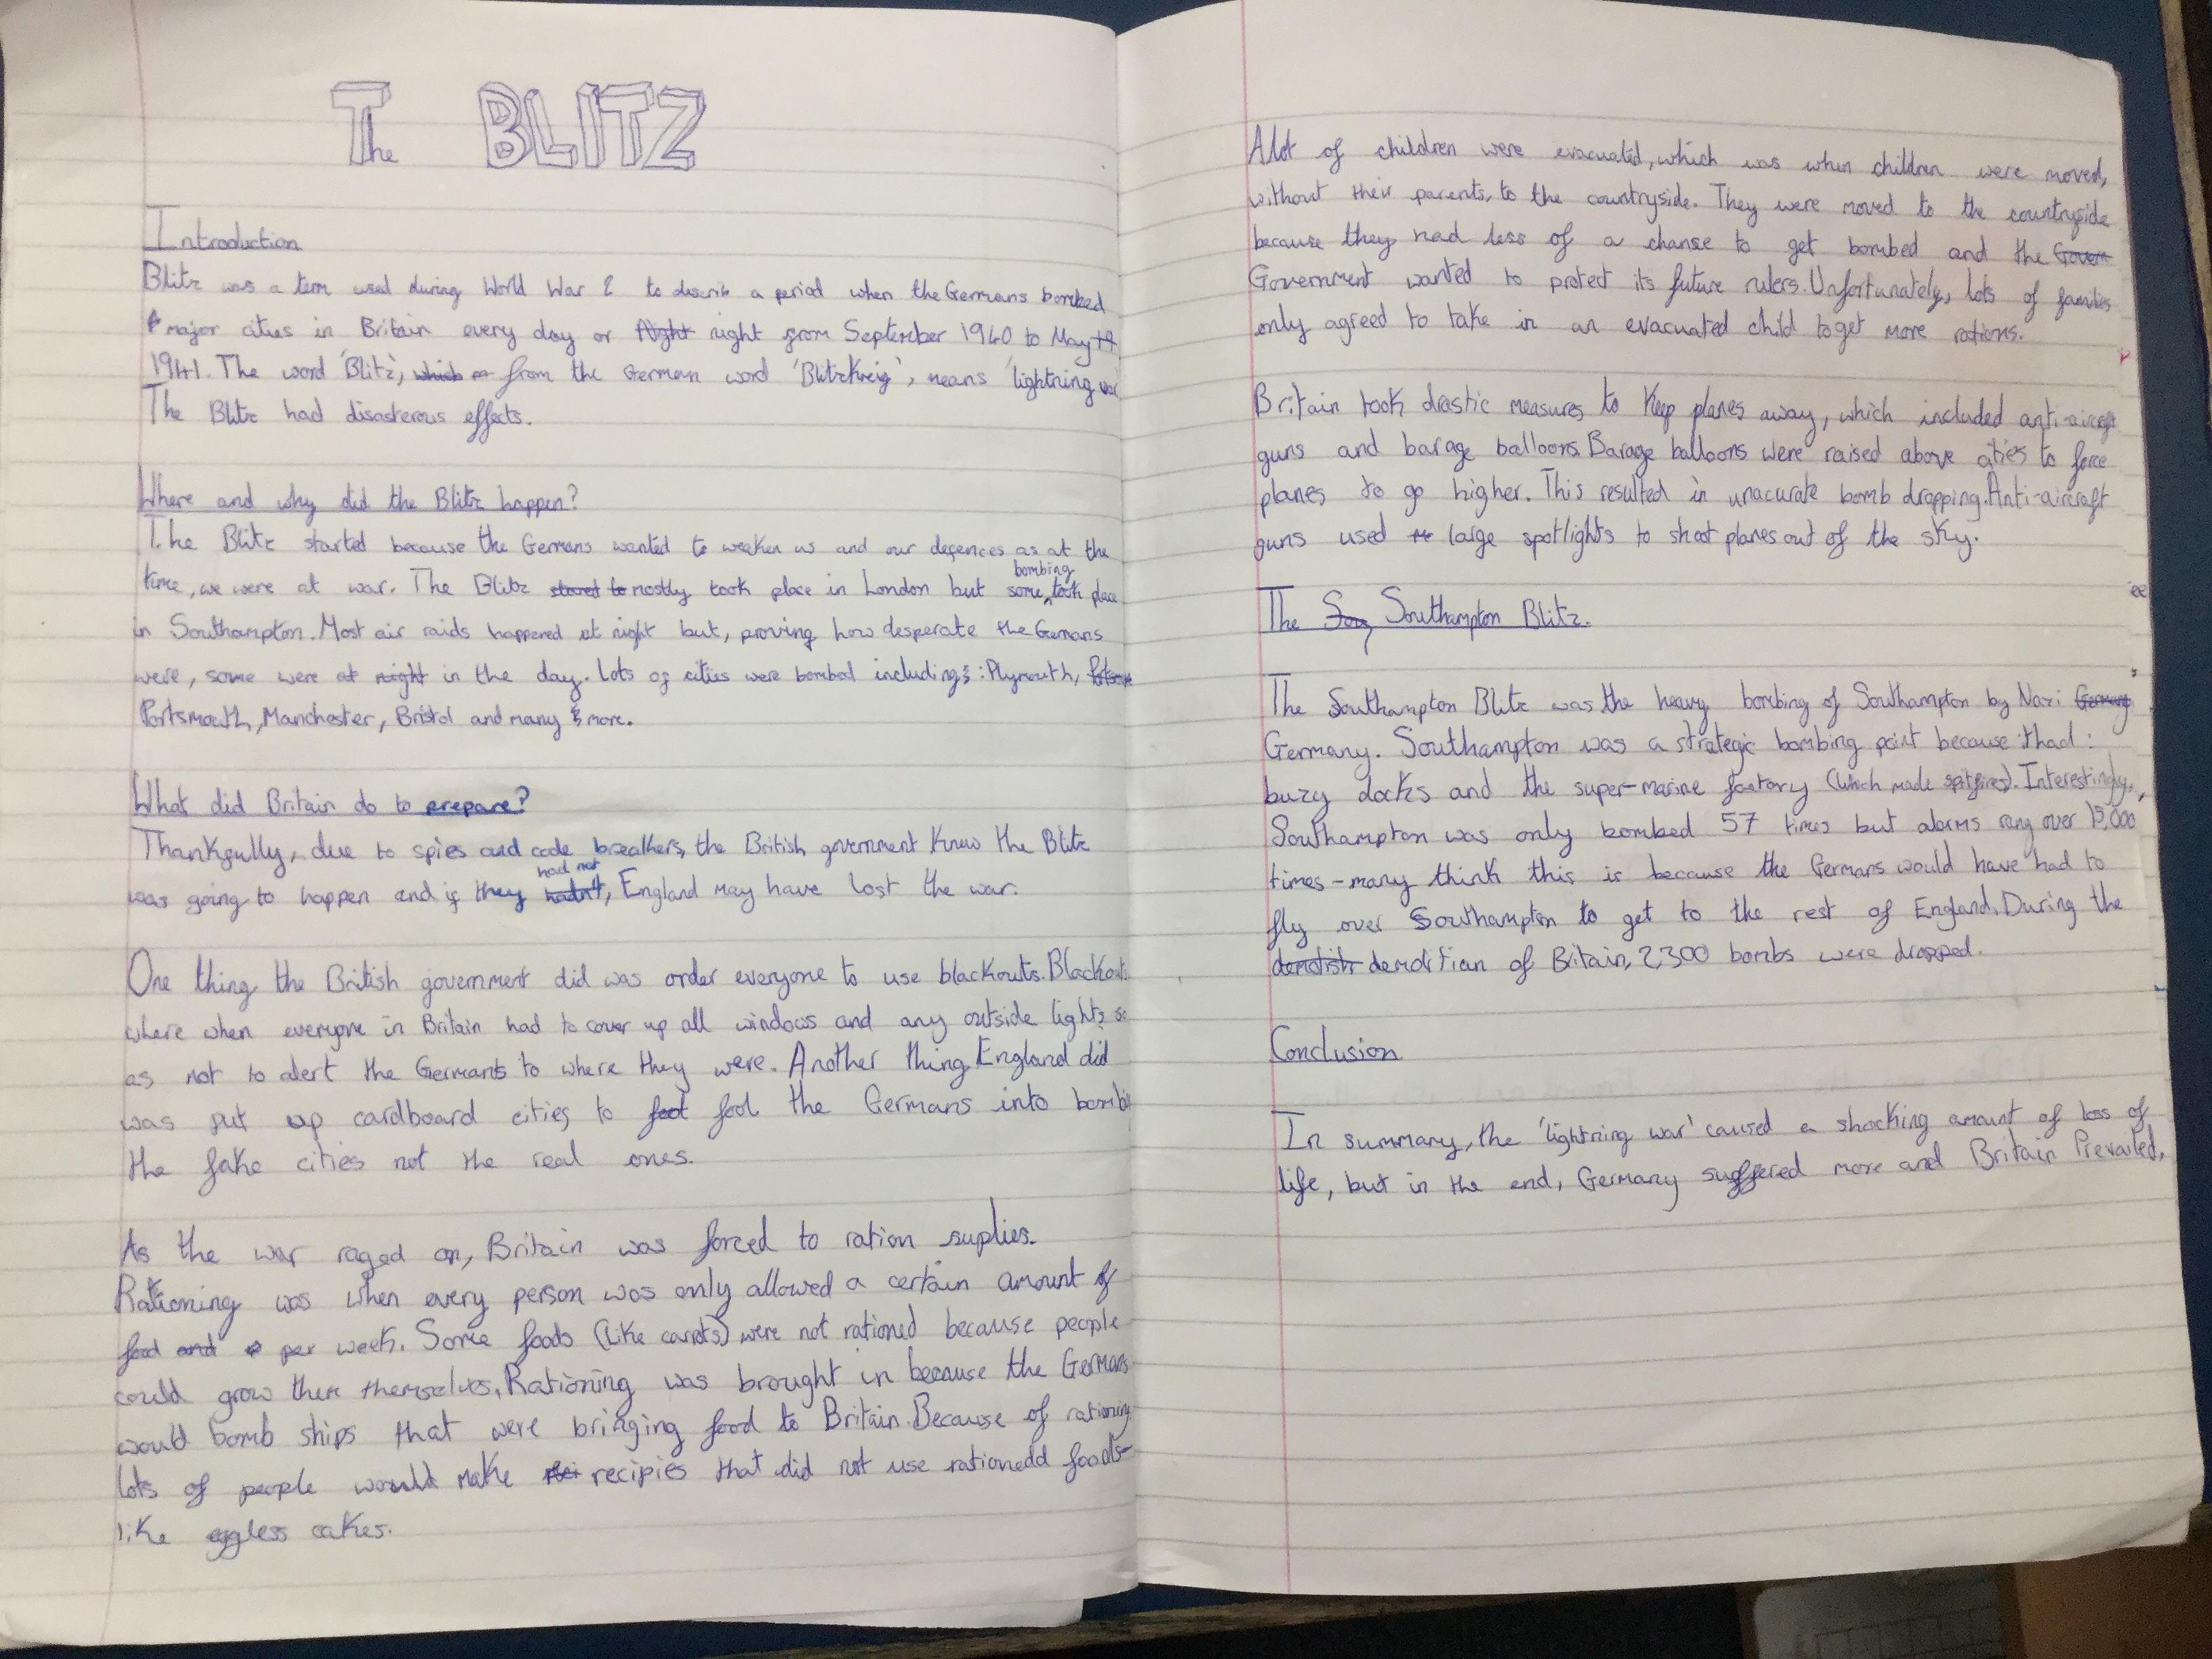 The BLITZ
Introduction
Blitz was a term used during World War 2 to describe a period when the Germans bombed
major cities in Britain every day or night from September 1940 to May
1941. The word 'Blitz', from the German word 'Blitzkreig', means 'lightning war
The Blitz had disasterous effects.
Where and why did the Blitz happen?
The Blitz started because the Germans wanted to weaken us and our defences as at the
time, we were at war. The Blitz mostly took place in London but some bombing took place
in Southampton. Most air raids happened at night but, proving how desperate the Germans
were, some were in the day. Lots of cities were bombed including: Plymouth,
Portsmouth, Manchester, Bristol and many more.
What did Britain do to prepare?
Thankfully, due to spies and code breakers, the British government knew the Blitz
was going to happen and if they had not, England may have lost the war.
One thing the British government did was order everyone to use blackouts. Blackouts
where when everyone in Britain had to cover up all windows and any outside lights so
as not to alert the Germans to where they were. Another thing England did
was put up cardboard cities to fool the Germans into bombing
the fake cities not the real ones.
As the war raged on, Britain was forced to ration suplies.
Rationing was when every person was only allowed a certain amount of
food per week. Some foods (like carots) were not rationed because people
could grow them themselves. Rationing was brought in because the Germans
would bomb ships that were bringing food to Britain. Because of rationing
lots of people would make recipies that did not use rationedd foods-
like eggless cakes.
Alot of children were evacuated, which was when children were moved,
without their parents, to the countryside. They were moved to the countryside
because they had less of a chanse to get bombed and the
Government wanted to protect its future rulers. Unfortunately, lots of families
only agreed to take in an evacuated child to get more rations.
Britain took drastic measures to keep planes away, which included anti-aircraft
guns and barage balloons. Barage balloons were raised above cities to force
planes to go higher. This resulted in unacurate bomb dropping. Anti-aircraft
guns used large spotlights to shoot planes out of the sky.
The Southampton Blitz.
The Southampton Blitz was the heavy bombing of Southampton by Nazi
Germany. Southampton was a strategic bombing point because it had:
buzy docks and the super-marine factory (which made spitfires). Interestingly,
Southampton was only bombed 57 times but alarms rang over 15,000
times - many think this is because the Germans would have had to
fly over Southampton to get to the rest of England. During the
demolitian of Britain, 2,300 bombs were dropped.
Conclusion
In summary, the 'lightning war' caused a shocking amount of loss of
life, but in the end, Germany suffered more and Britain Prevailed.